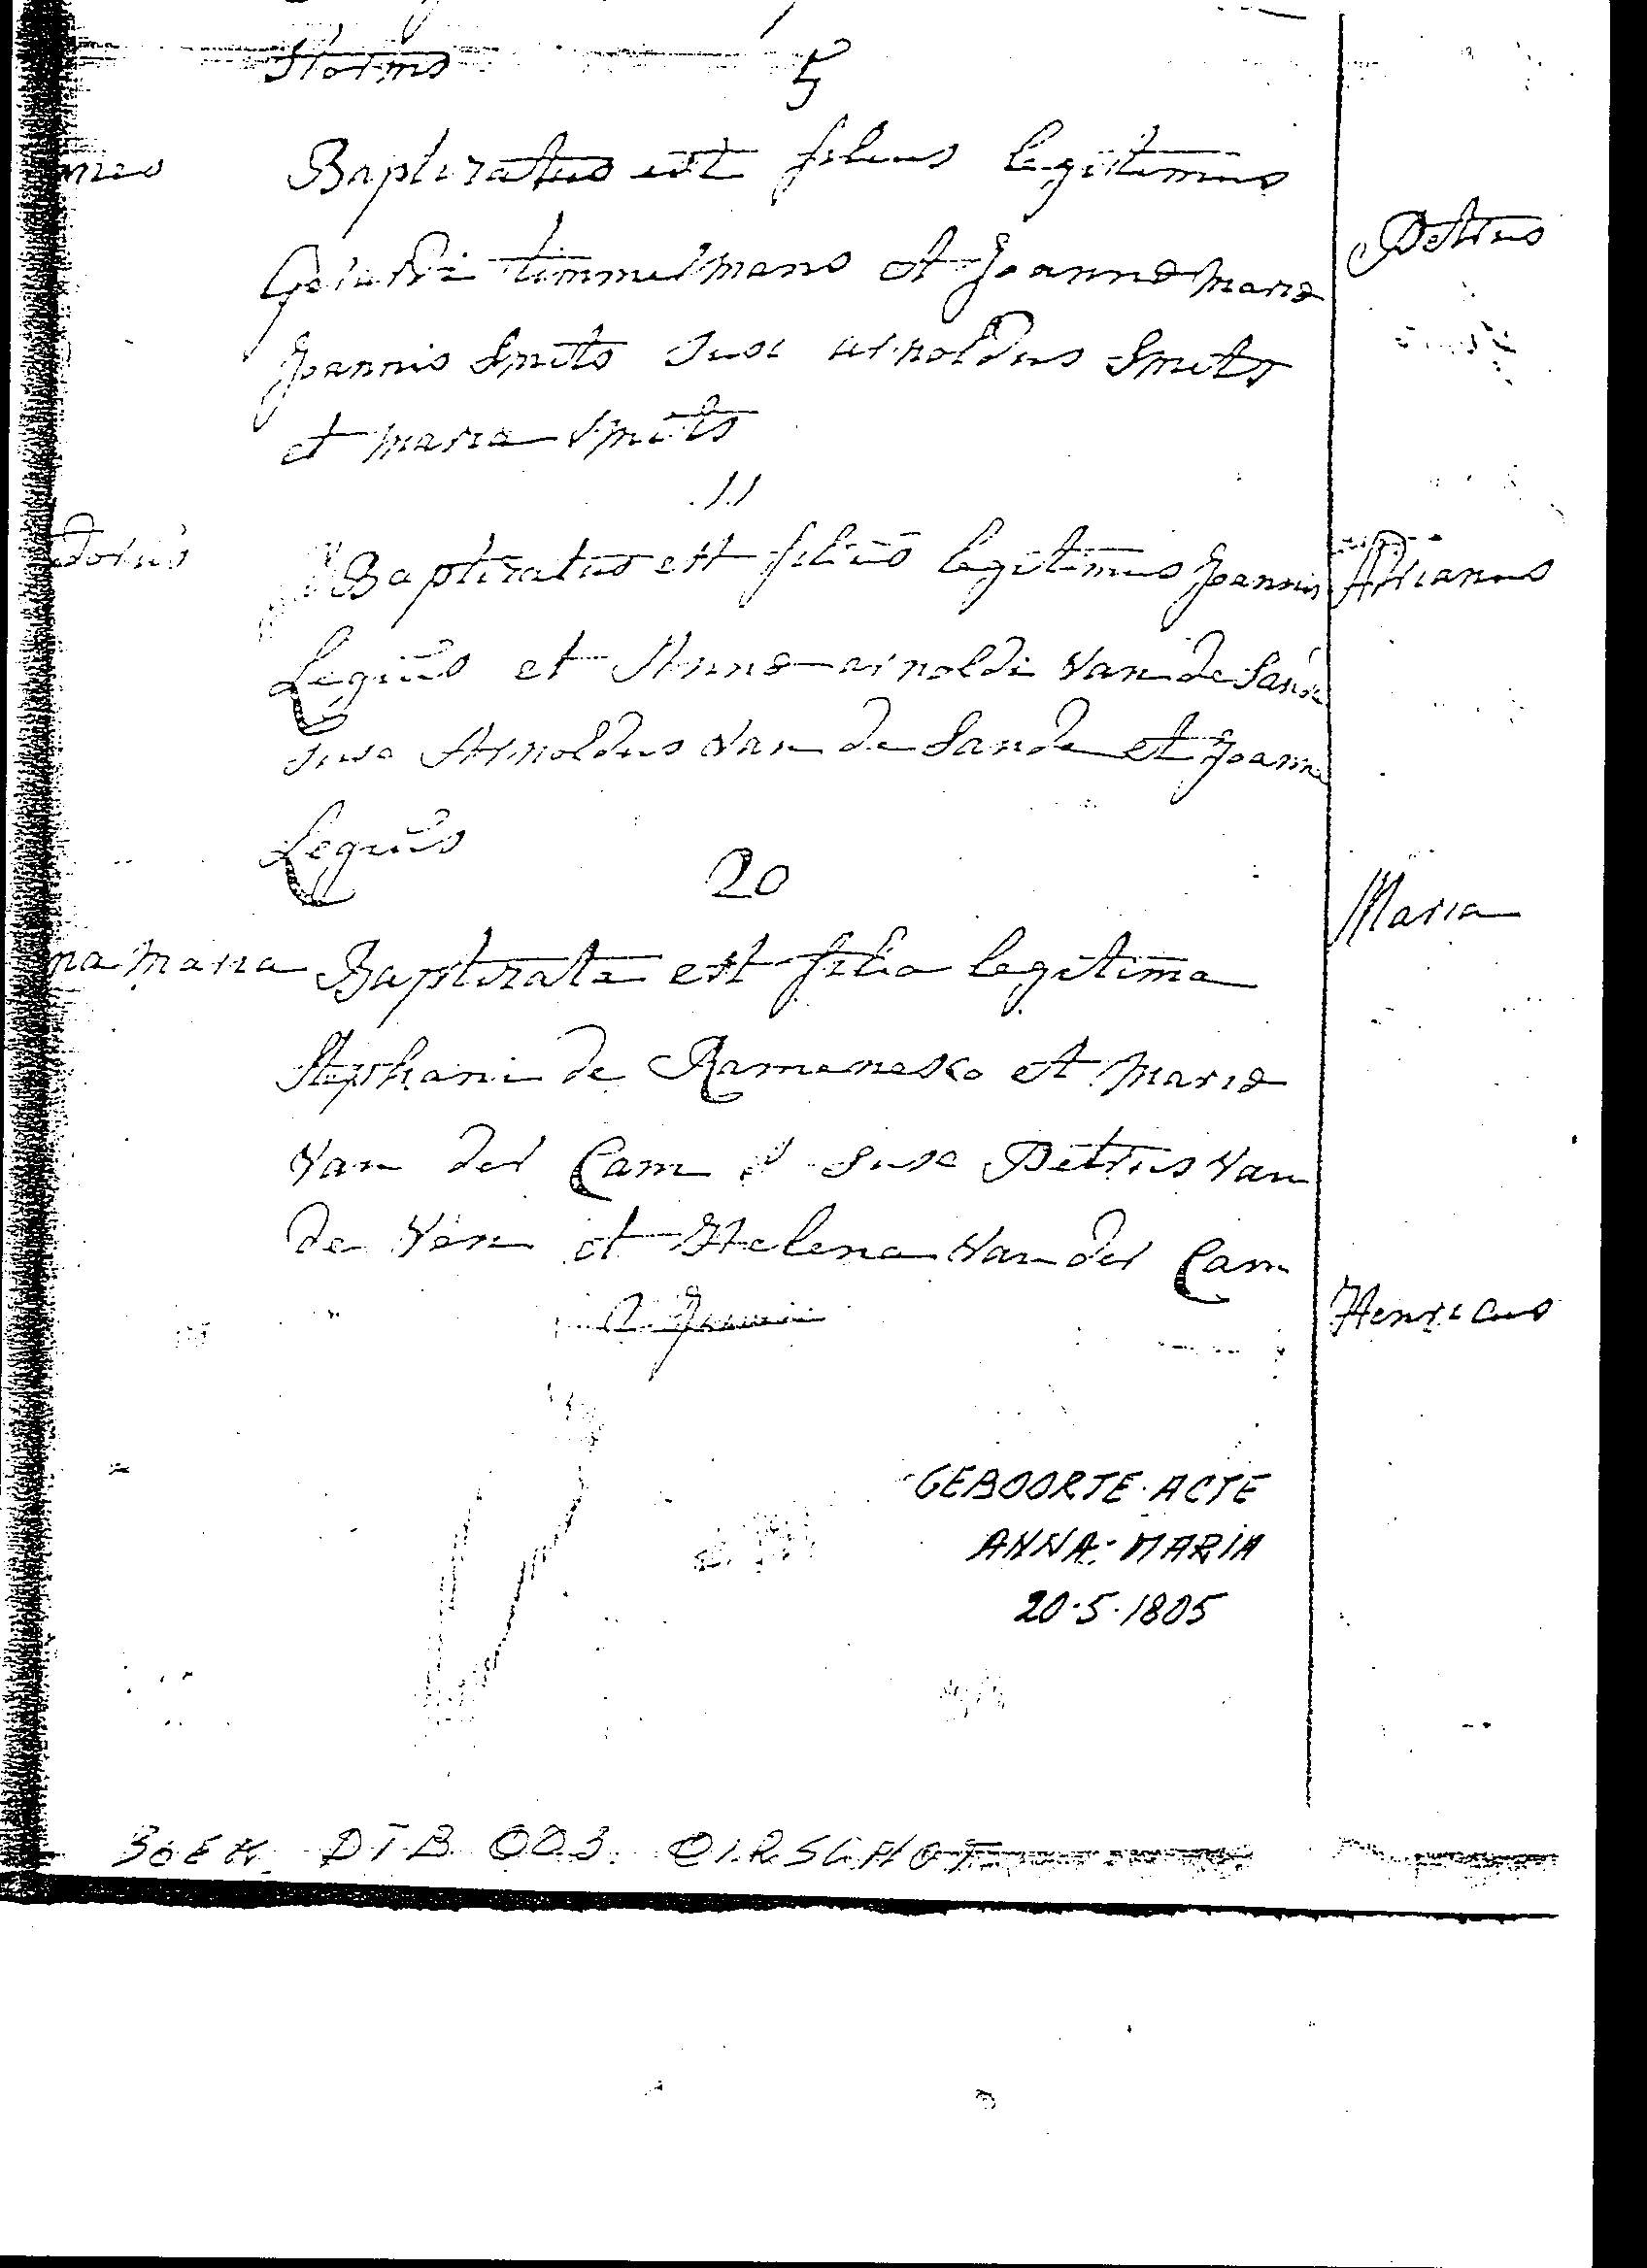 Storms
5
Baptizatus est filius legitimus
timmermans et Joannæ Mariæ
Joannis Smits Susc arnoldus Smits
et maria Smits
11
Baptizatus est filius legitimus Joannis
Legius et Annæ arnoldi van de Sande
Susc Arnoldus van de Sande et Joanna
Legius
20
na maria Baptizata est filia legitima
Stephani de et Mariæ
van der Cam Susc Petrus van
de Ven et Helena van der Cam
Petrus
Adrianus
Maria
Henricus
GEBOORTE-ACTE
ANNA-MARIA
20-5-1805
BOEK DTB 003. OIRSCHOT